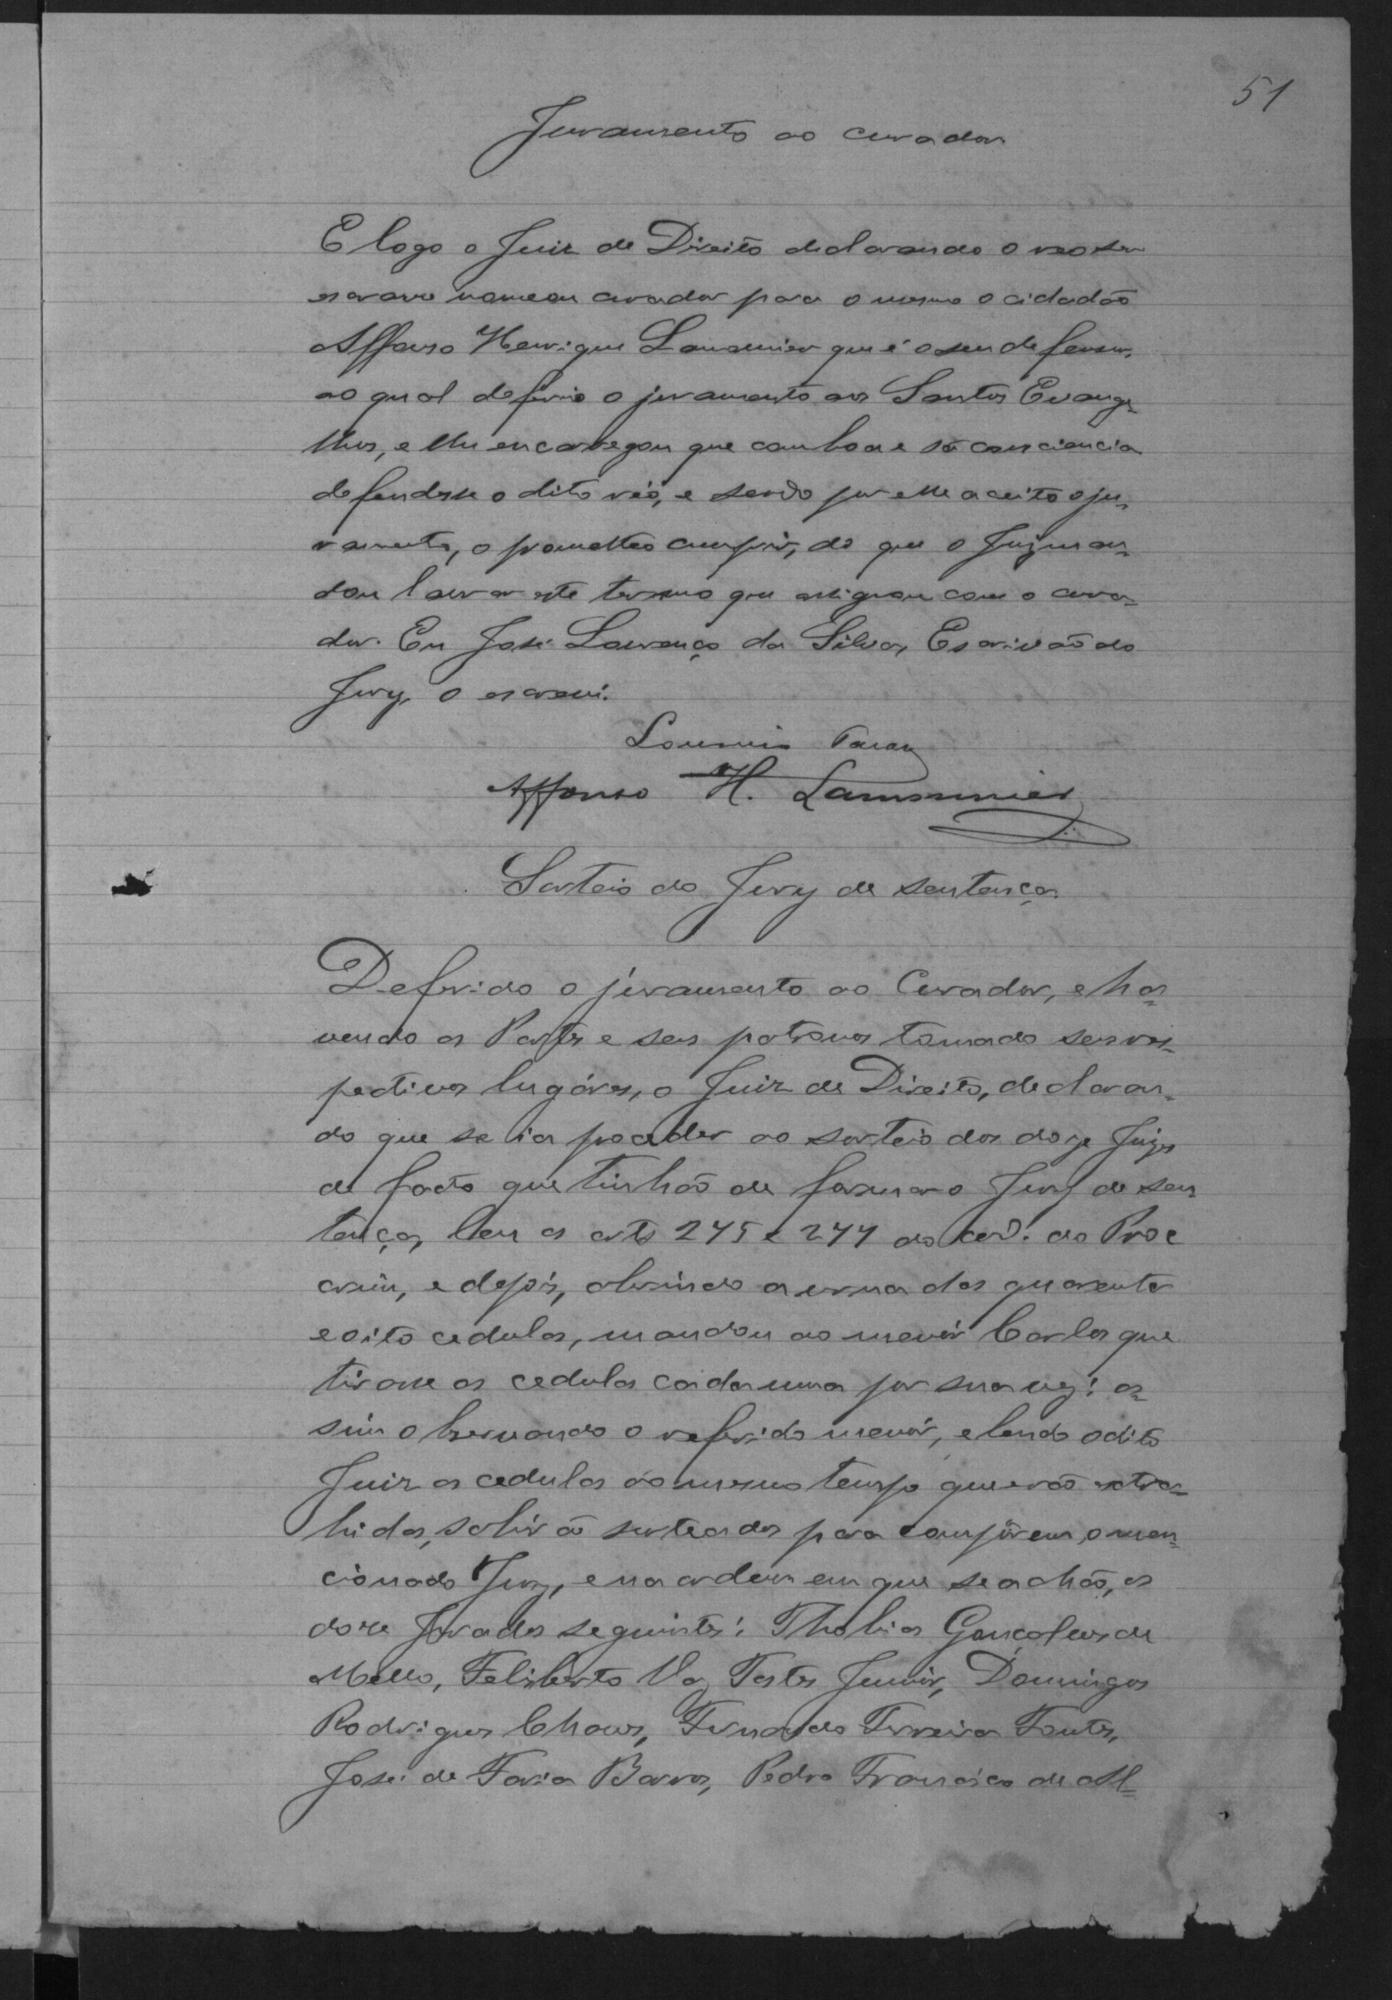 51
Juramento ao curador
E logo o Juiz de Direito declarando o reo ser
escravo nomeou curador para o mesmo o cidadão
Affonso Henrique Lamounier que é o seu defensor,
ao qual deferio o juramento aos Santos Evange-
lhos, e lhe encarregou que com boa e sã consciencia
defendesse o dito réo, e sendo por elle aceito o ju-
ramento, o prometteo cumprir, do que o Juiz man-
dou lavrar este termo que assignou com o cura-
dor. Eu José Lourenço da Silva, Escrivão do
Jury, o escrevi.
Affonso H. Lamounier
Sorteio do Jury de sentença
Deferido o juramento ao Curador, e ha-
vendo as Partes e seus patronos tomado seus res-
pectivos lugáres, o Juiz de Direito, declaran-
do que se ia proceder ao sorteio dos doze Juizes
de facto que tinhão de formar o Jury de sen
tença, leu os arts 275 e 277 do Cod. do Proc
crim, e depois, abrindo a urna das quarenta
e oito cedulas, mandou ao menór Carlos que
tirasse as cedulas cada uma por sua vez: as-
sim observando o referido menór, e lendo o dito
Juiz as cedulas ao mesmo tempo que erão extra-
hidas, sahirão sorteados para compôrem o men-
cionado Jury, e na ordem em que se achão, os
doze Jurados seguintes: Thobias Gonçalves de
Mello, Feliberto Vaz Tostes Junior, Domingos
Rodrigues Chaves, Fernando Ferreira Fontes,
José de Faria Barros, Pedro Francisco de Al-